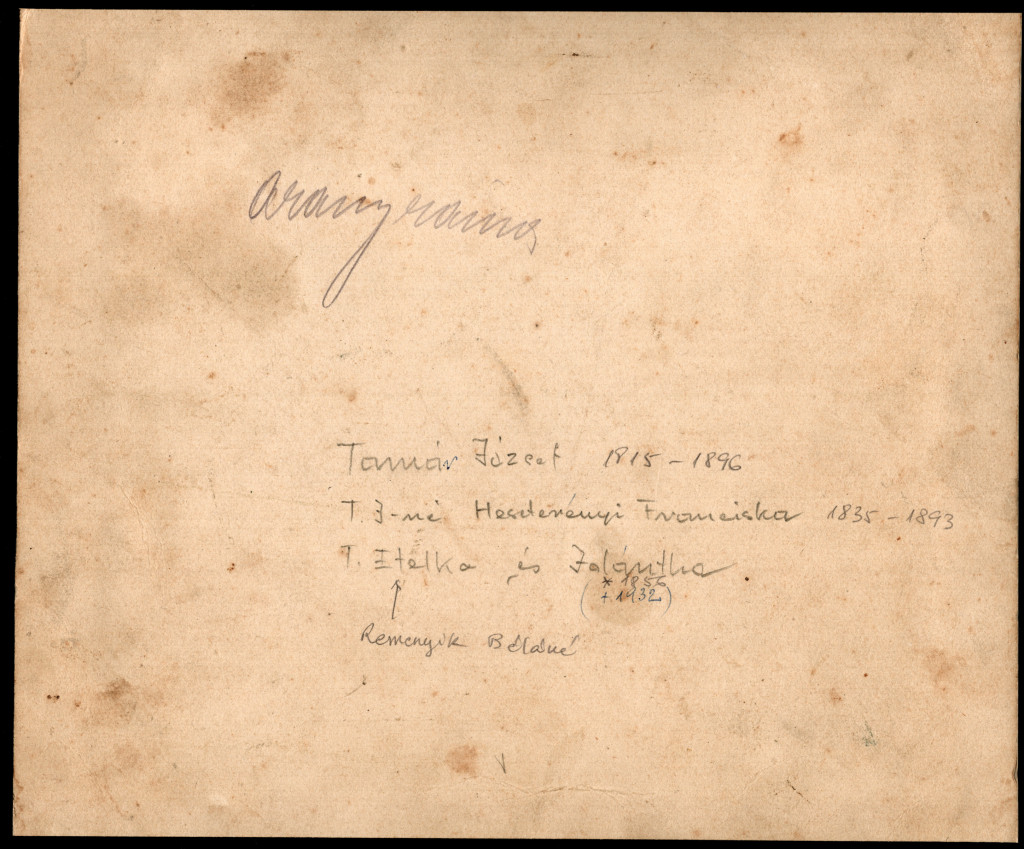 Aranyrámás
Tamár József 1815 – 1896
T. J-né Heszterényi Franciska 1835 – 1893
T. Etelka és Jolántha
(* 1856
+ 1932)
↑
Reményik Béláné